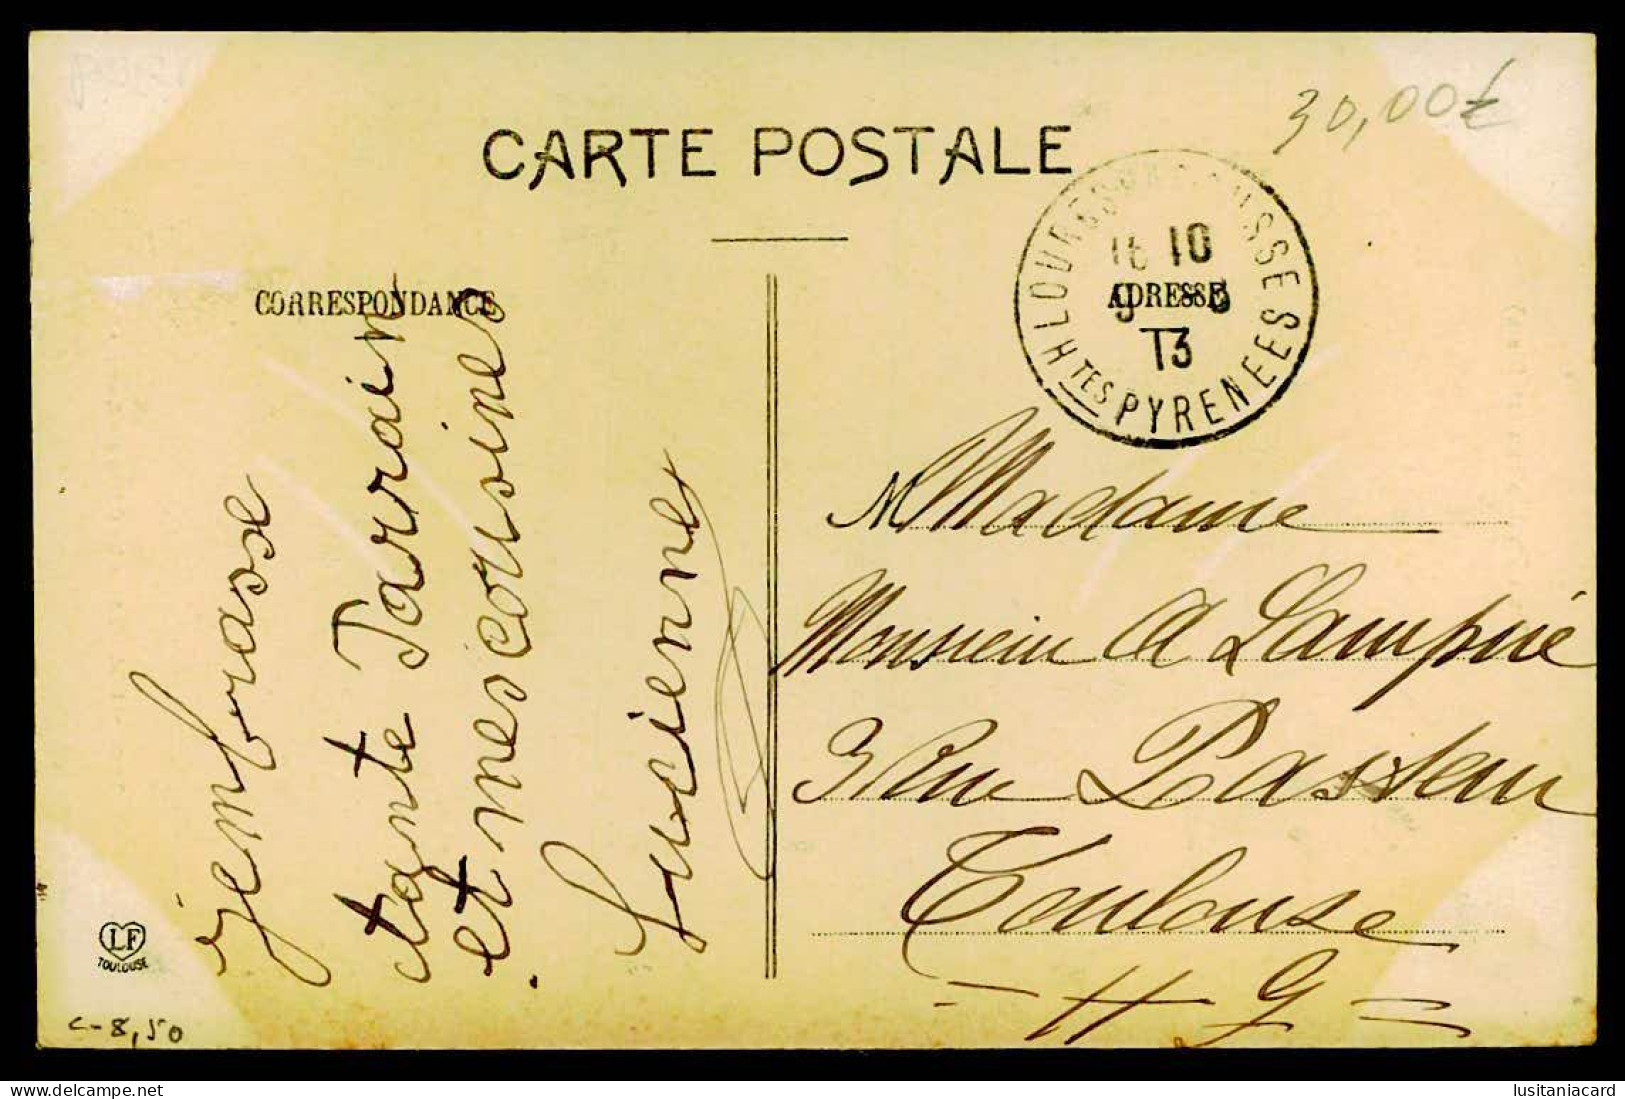 30,00€
CARTE POSTALE
CORRESPONDANCE
ADRESSE
16 10
13
Htes PYRENEES
j'embrasse
tante Parrain
et mes cousines
Lucienne
M Madame
Monsieur A Lampué
3 Rue Pasteur
Toulouse
- H G =
LF
TOULOUSE
c-8,50
http://www.delcampe.net
lusitaniacard